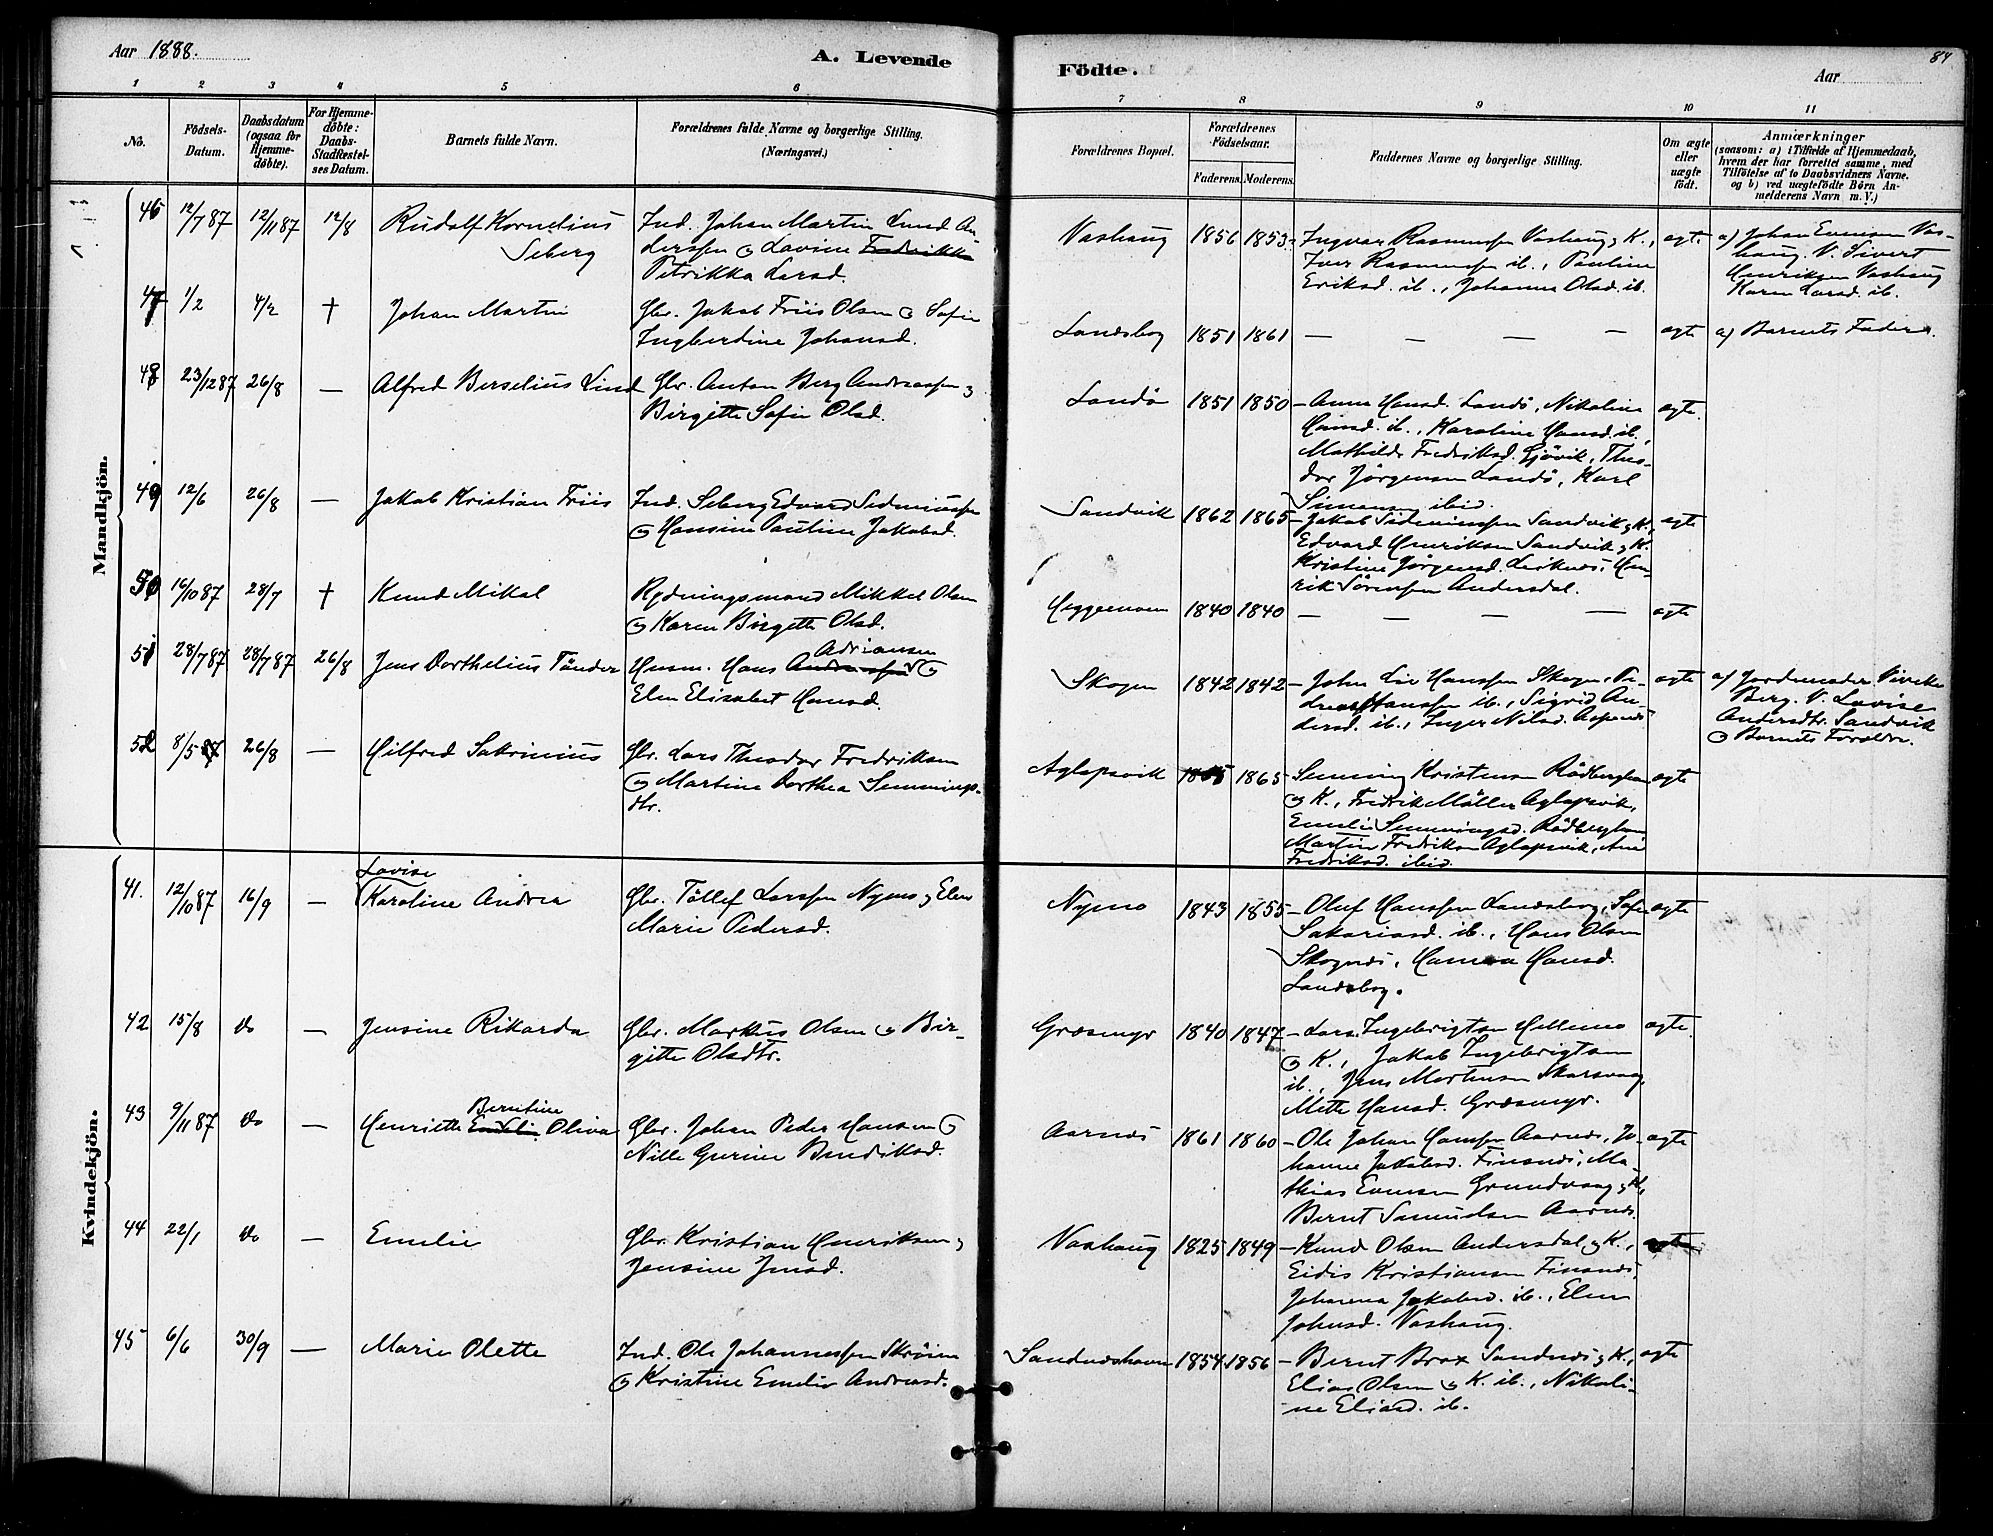 Aar 1888.
A. Levende
Födte.
Aar
84
1 2 3 4 5 6 7 8 9 10 11
No.
Födsels-
Datum.
Daabsdatum
(ogsaa for
Hjemme-
döbte).
For Hjemme-
döbte:
Daabs-
Stadfæstel-
ses Datum.
Barnets fulde Navn.
Forældrenes fulde Navne og borgerlige Stilling.
(Næringsvei.)
Forældrenes Bopæl.
Forældrenes
Födselsaar.
Faderens. Moderens.
Faddernes Navne og borgerlige Stilling.
Om ægte
eller
uægte
födt.
Anmærkninger
(saasom: a) i Tilfælde af Hjemmedaab,
hvem der har forrettet samme, med
Tilföielse af to Daabsvidners Navne.
og b) ved uægtefödte Börn An-
melderens Navn m. V.)
Mandkjön.
46 12/7 87 12/11 87 12/8 Rudolf Kornelius
Seberg
Ind. Johan Martin Lund An-
derssen & Lovine Fredrikke
Petrikka Larsd.
Vashaug 1856 1853
Ingvar Rasmussen Vashaug & K.,
Iver Rasmussen ib., Pauline
Eriksd. ib., Johanna Olsd. ib.
ægte
a) Johan Evensen Vas-
haug. V. Sivert
Henriksen Vashaug
Karen Larsd. ib.
47 1/2 4/2 † Johan Martin
Gbr. Jakob Friis Olsen & Sofie
Ingberdine Johansd.
Landsbog 1851 1861 — — — — ægte a) Barnets Fader.
48 23/12 87 26/8 — Alfred Berselius Lind
Gbr. Anton Berg Andreassen &
Birgitte Sofie Olsd.
Landö 1851 1850
— Anne Hansd. Landö, Nikoline
Hansd. ib., Karoline Hansd. ib.,
Mathilde Fredriksd. Gjövik, Theo-
dor Jörgensen Landö, Karl
Simonsen ibid.
ægte.
49 12/6 26/8 — Jakob Kristian Friis
Ind. Seberg Edvard Sedeniussen
& Hansine Pauline Jakobsd.
Sandvik 1862 1865
— Jakob Sideniussen Sandvik & K.,
Edvard Henriksen Sandvik & K.
Kristine Jörgensd. Leiknes, Hen-
rik Sörensen Andersdal.
ægte
50 16/10 87 28/7 † Knud Mikal
Rydningsmand Mikkel Olsen
& Karen Birgitte Olsd.
1840 1840 — — — — ægte
51 28/7 87 28/7 87 26/8 Jens Dorthelius Tönder
Adriansen
Husm. Hans Andreassen &
Elen Elisabet Hansd.
Skogen 1842 1842
— John Lie Hanssen Skogen, Pe-
der Hanssen ib., Sigrid An-
dersd. ib., Inger Nilsd. Aspenes
ægte
a) Jordemoder Vivike
Berg. V. Lovise
Andersdtr. Sandvik
& Barnets Forældre.
52 8/5 87 26/8 — Hilfred Sakrinius
Gbr. Lars Theodor Fredriksen
& Martine Dorthea Semmings-
dtr.
Aglapsvik 1865 1865
— Semming Kristensen Rödberghavn
& K., Fredrik Möller Aglapsvik,
Emelie Semmingsd. Rödberghavn,
Martin Fredriksen Aglapsvik, Ane
Fredriksd. ibid.
ægte
Kvindekjön.
41. 12/10 87 16/9 —
Lovise
Karoline Andrea
Gbr. Tollef Larssen Nymo & Elen
Marie Pedersd.
Nymo 1843 1855
— Oluf Hanssen Landsbog, Sofie
Sakariasd. ib., Hans Olsen
Skognes, Hanna Hansd.
Landsbog.
ægte
42 15/8 do — Jensine Rikarda
Gbr. Markus Olsen & Bir-
gitte Olsdtr.
Græsmyr 1840 1847
— Lars Ingebrigtsen Hellemo
& K., Jakob Ingebrigtsen
ib., Jens Mortensen Skarsvaag,
Mette Hansd. Græsmyr.
ægte
43 9/11 87 do —
Berntine
Henriette Emelie Oliva
Gbr. Johan Peder Hansen &
Nille Gurine Bendiksd.
Aarnes 1861 1860
— Ole Johan Hanssen Aarnes, Jo-
hanne Jakobsd. Finsnes, Ma-
thias Evensen Grundvaag & K.,
Bernt Samuelsen Aarnes.
ægte
44 22/1 do — Emelie
Gbr. Kristian Henriksen &
Jensine Jensd.
Vashaug 1825 1849
— Knud Olsen Andersdal & K.,
Eidis Kristiansen Finsnes,
Johanna Jakobsd. ib., Elen
Johnsd. Vashaug.
ægte
45 6/6 30/9 — Marie Olette
Ind. Ole Johannessen Skröven
& Kristine Emelie Andreasd.
Sandneshavn 1854 1856
— Bernt Brox Sandnes & K.,
Elias Olsen & K. ib., Nikoli-
ne Eliasd. ib.
ægte